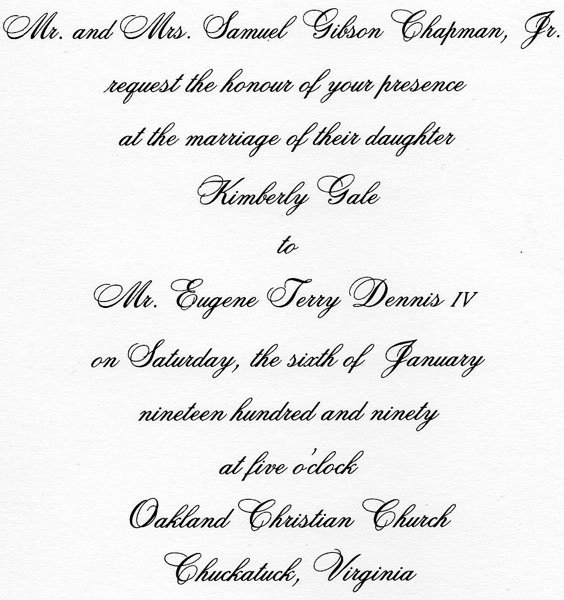 Mr. and Mrs. Samuel Gibson Chapman, Jr.
request the honour of your presence
at the marriage of their daughter
Kimberly Gale
to
Mr. Eugene Terry Dennis IV
on Saturday, the sixth of January
nineteen hundred and ninety
at five o'clock
Oakland Christian Church
Chuckatuck, Virginia